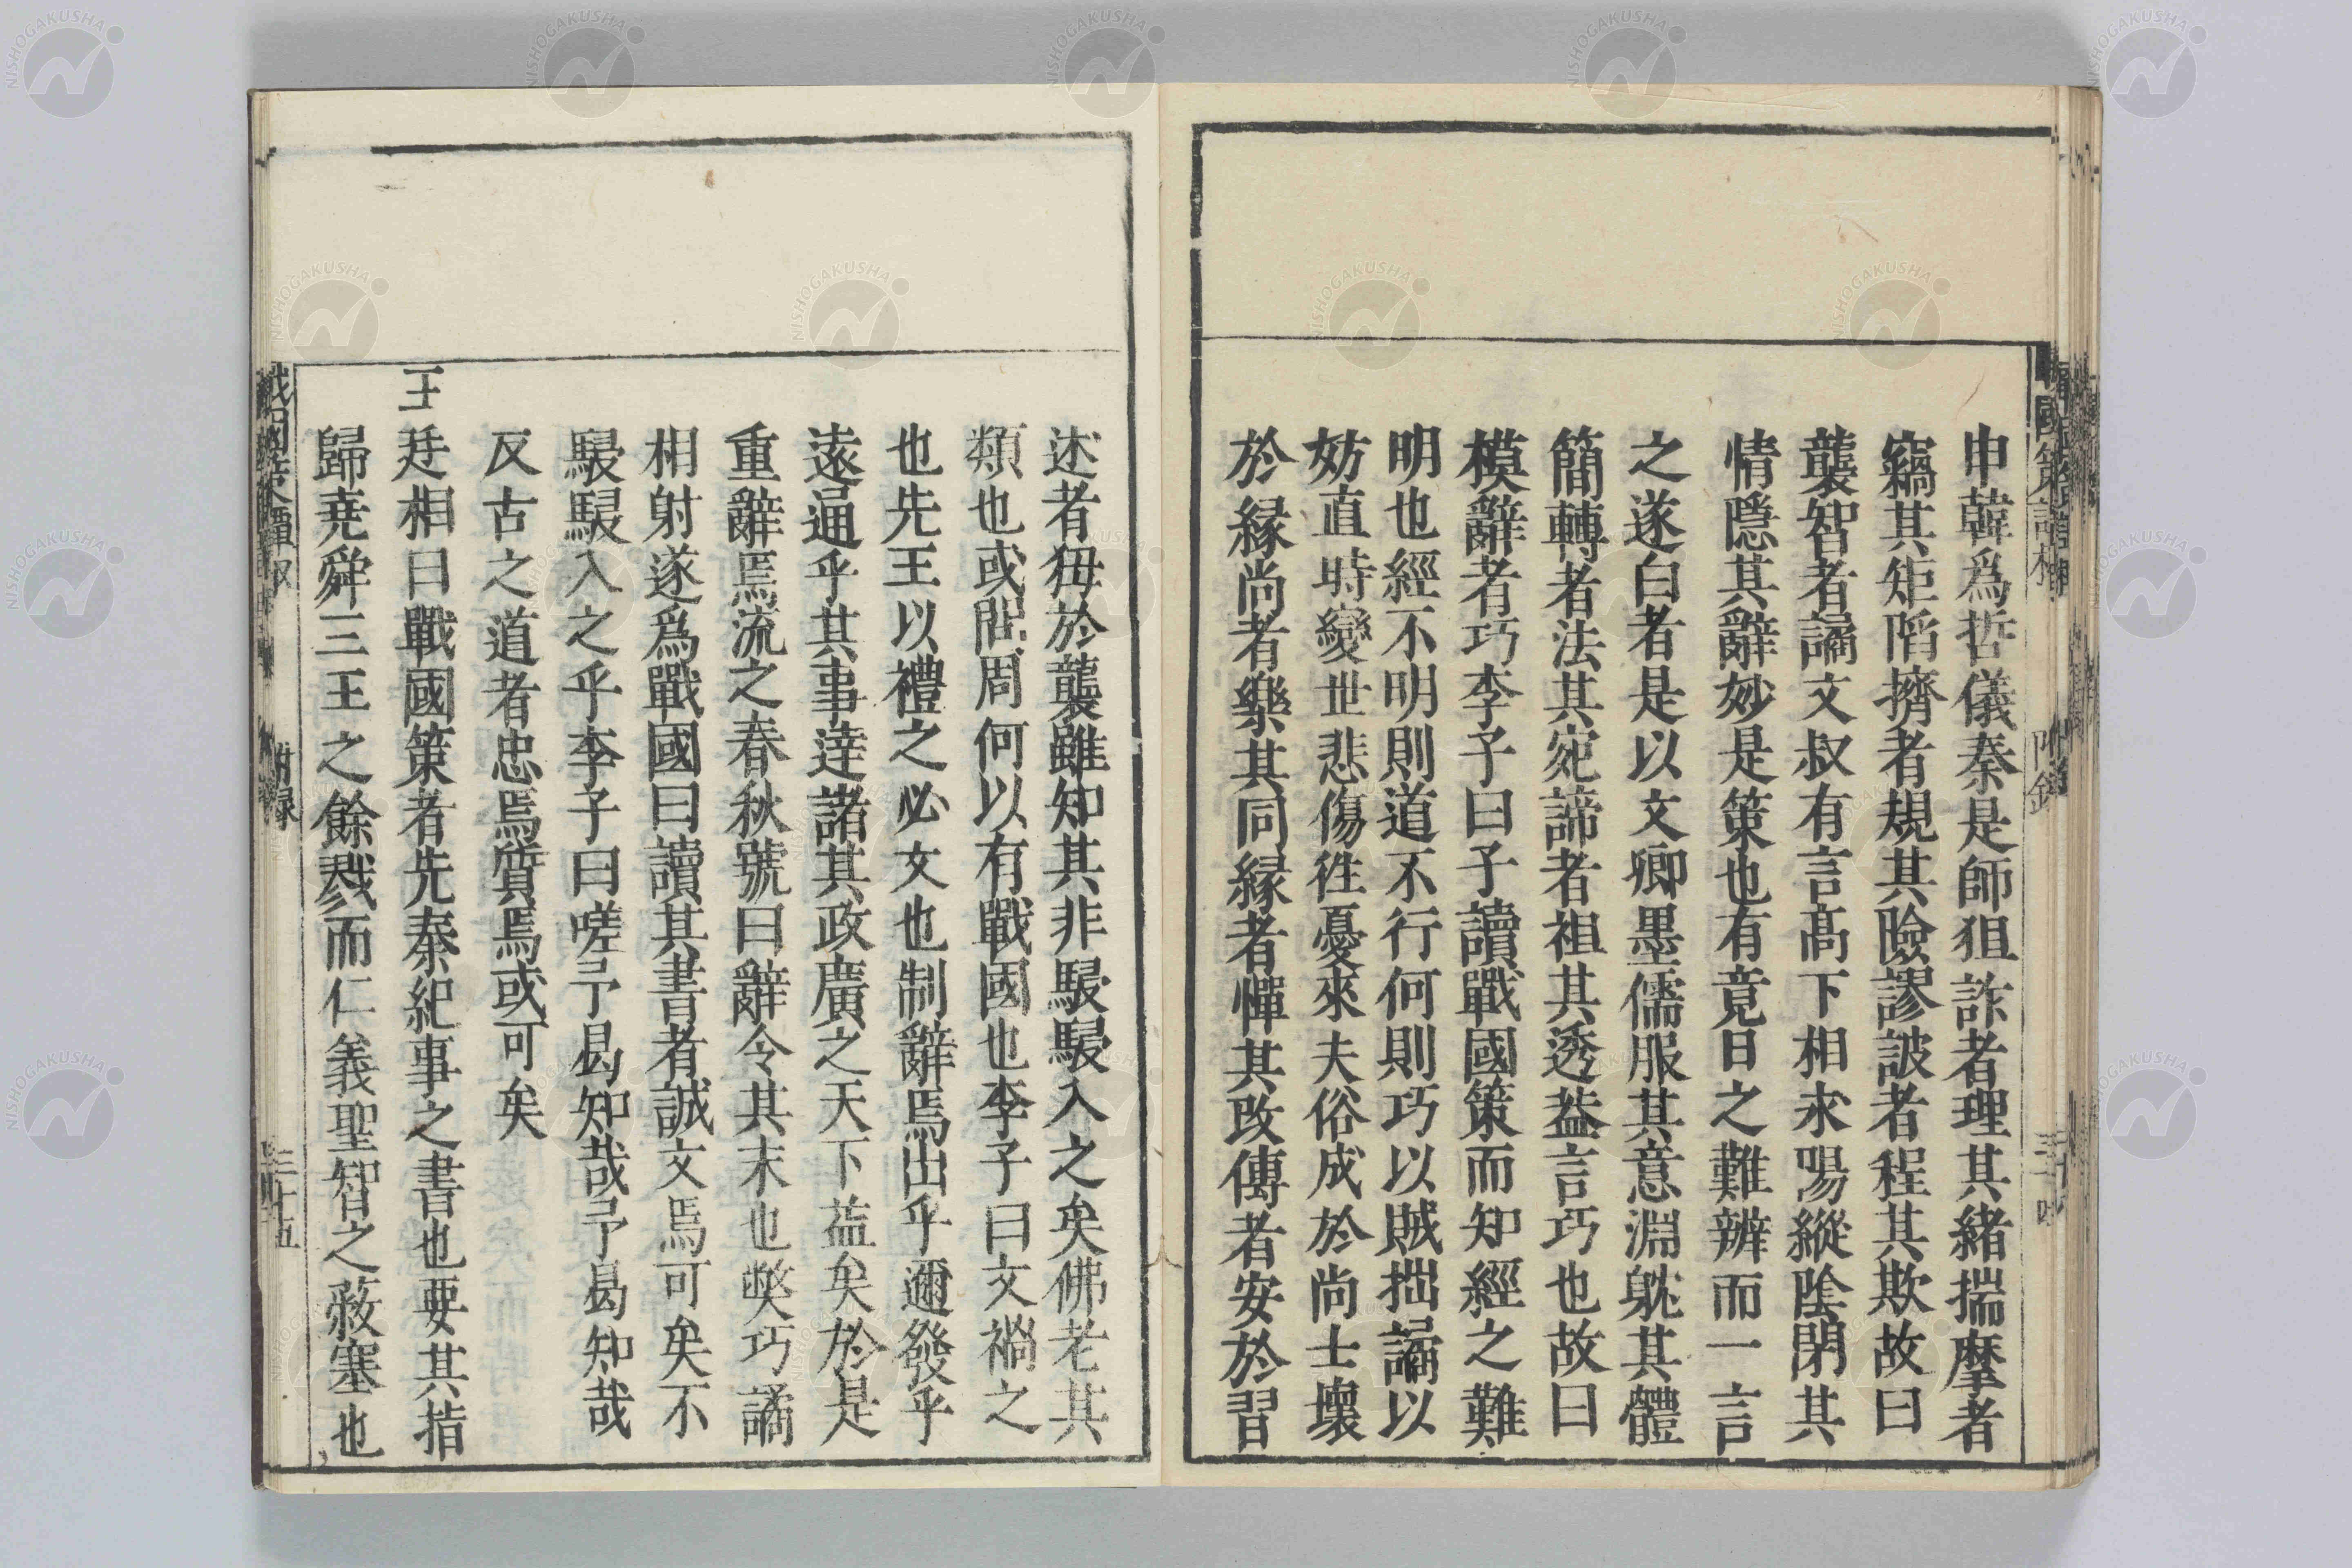 申韓爲哲儀秦是師狙詐者理其緒揣摩者
竊其矩䧟擠者規其險謬詖者程其欺故曰
襲智者譎文叔有言髙下相求陽縱陰閉其
情隱其辭妙是策也有竟日之難辨而一言
之遂白者是以文卿墨儒服其意淵躭其體
簡轉者法其宛諦者祖其透葢言巧也故曰
模辭者巧李子曰予讀戰國策而知經之難
明也經不明則道不行何則巧以賊拙譎以
妨直時變世悲傷徃憂來夫俗成於尚士壞
於緣尚者樂其同緣者憚其攺傳者安於習
述者狃於襲雖知其非駸駸入之矣佛老其
類也或問周何以有戰國也李子曰文禍之
也先王以禮之必文也制辭焉出乎邇發乎
遠通乎其事達諸其政廣之天下益矣於是
重辭焉流之春秋號曰辭令其末也獘巧譎
相射遂爲戰國曰讀其書者誠文焉可矣不
駸駸入之乎李子曰嗟予曷知哉予曷知哉
反古之道者忠焉質焉或可矣
王
廷相曰戰國策者先秦紀事之書也要其指
歸堯舜三王之餘戮而仁義聖智之蔽塞也
戰國策譚棷
附録
三十五